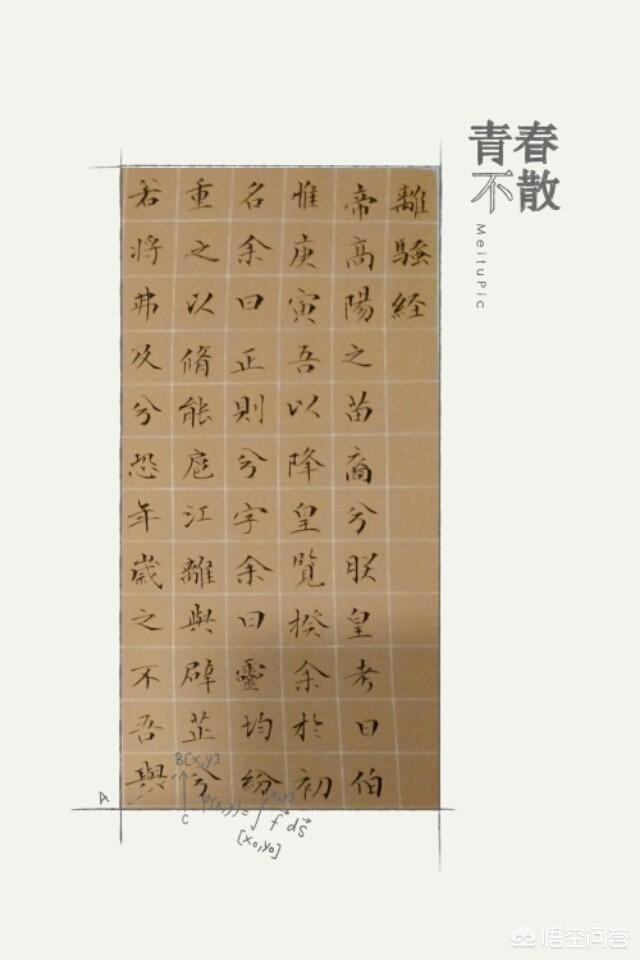 青春
不散
MeituPic
離騷経
帝高陽之苗裔兮朕皇考曰伯
惟庚寅吾以降皇覧揆余於初
名余曰正則兮字余曰靈均紛
重之以脩能扈江離與辟芷兮
若将弗及兮恐年歲之不吾與
A
B[x,y]
C
φ(x,y)=∫ f⃗ ds⃗
[x₀,y₀]
悟空问答